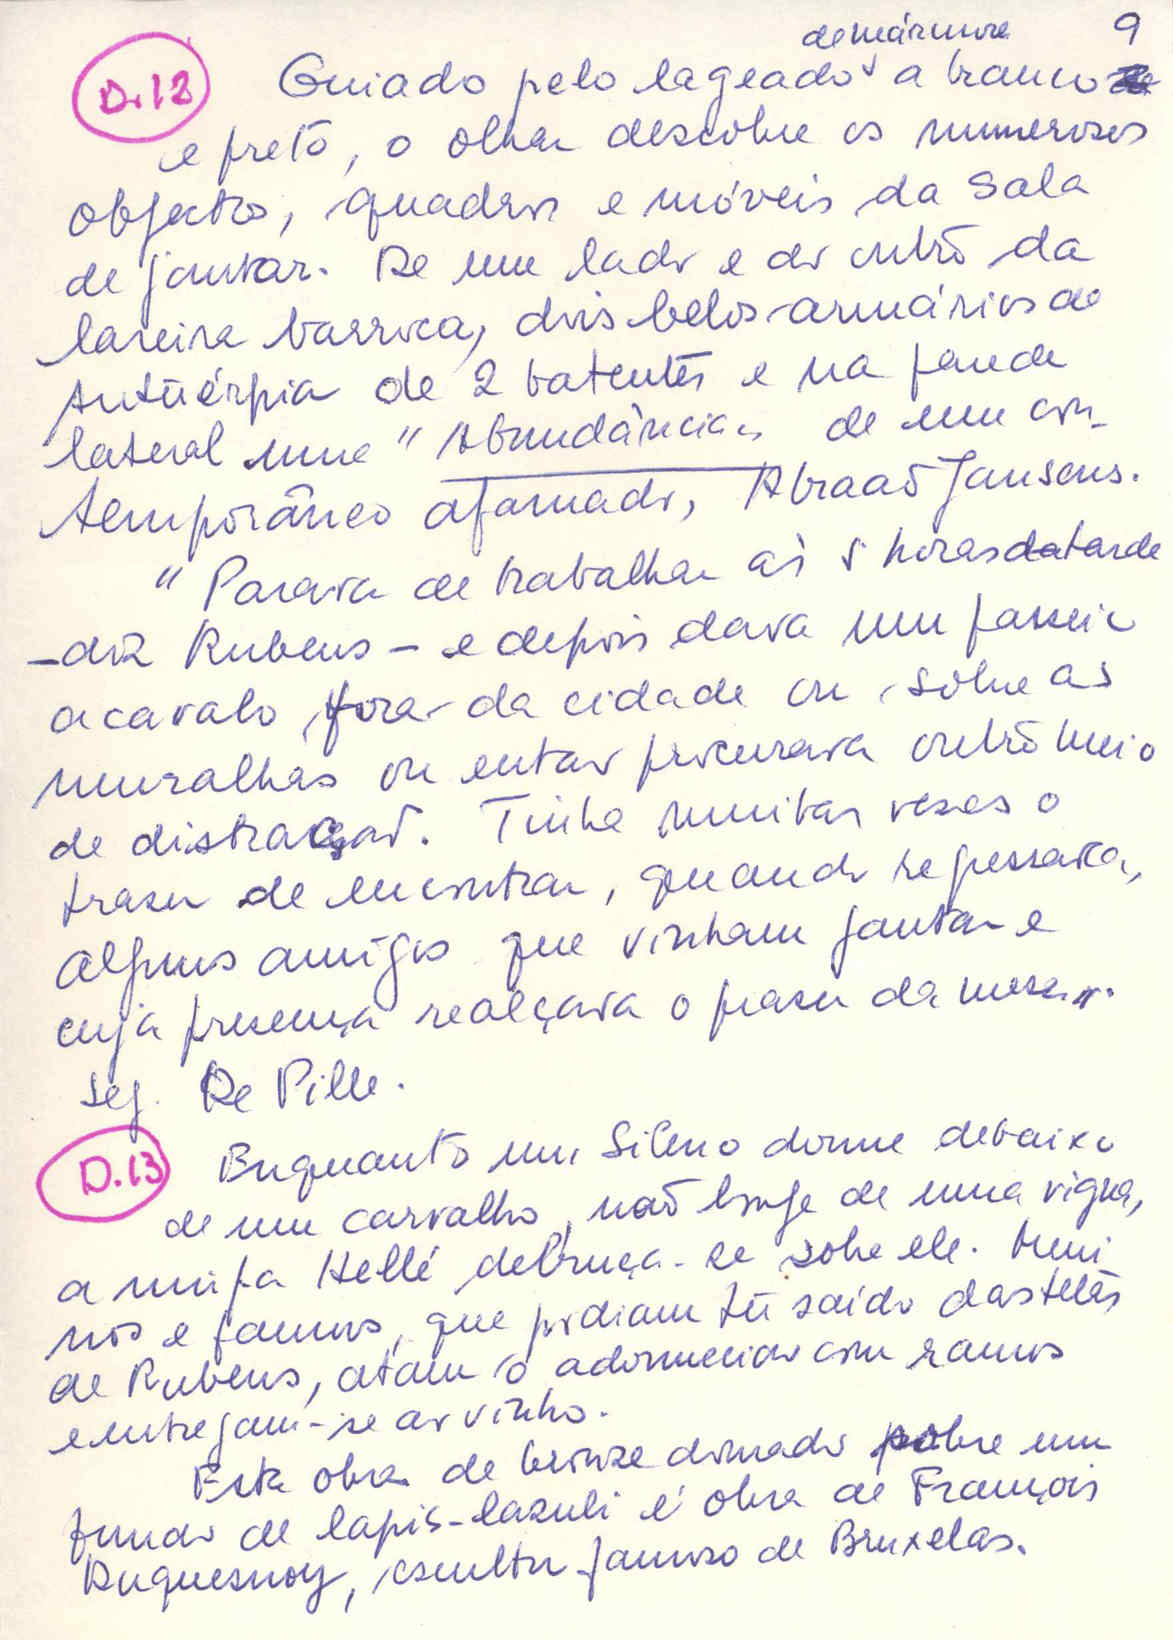 9
de mármore
D.12 Guiado pelo lageado a branco
e preto, o olhar descobre os numerosos
objectos, quadros e móveis da sala
de jantar. De um lado e do outro da
lareira barroca, dois belos armários de
Antuérpia de 2 batentes e na parede
lateral uma "Abundância" de um con-
temporâneo afamado, Abraão Jansens.
"Parava de trabalhar às 5 horas da tarde
- diz Rubens - e depois dava um passeio
a cavalo fora da cidade ou sobre as
muralhas ou então procurava outro meio
de distracção. Tinha muitas vezes o
prazer de encontrar, quando regressava,
alguns amigos que vinham jantar e
cuja presença realçava o prazer da mesa".
Seg. De Pille.
D.13 Enquanto um Sileno dorme debaixo
de um carvalho, não longe de uma vigna,
a ninfa Hellé debruça-se sobre ele. Meni
nos e faunos, que podiam ter saído das telas
de Rubens, atam o adormecido com ramos
e entregam-se ao vinho.
Esta obra de bronze dourado sobre um
fundo de lapis-lazuli é obra de François
Duquesnoy, escultor famoso de Bruxelas.